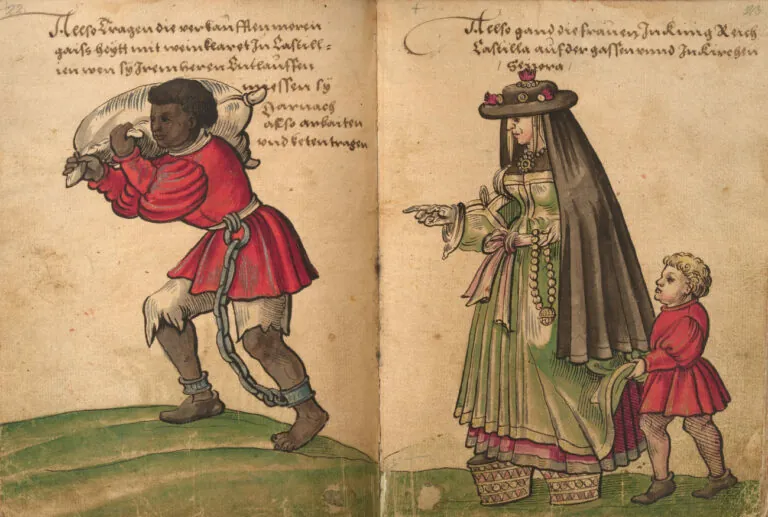 22.
Allso Tragen die verkaufften moren
gaiss heytt mit wein klaret In Castill=
ien wen sy Irem heren Entlauffen
miessen sy
Darnach
also arbaiten
vnd keten tragen
23
Allso gand die frauen In Küng Reich
Castilla auf der gassen vnnd In kirchen
/ Senora /